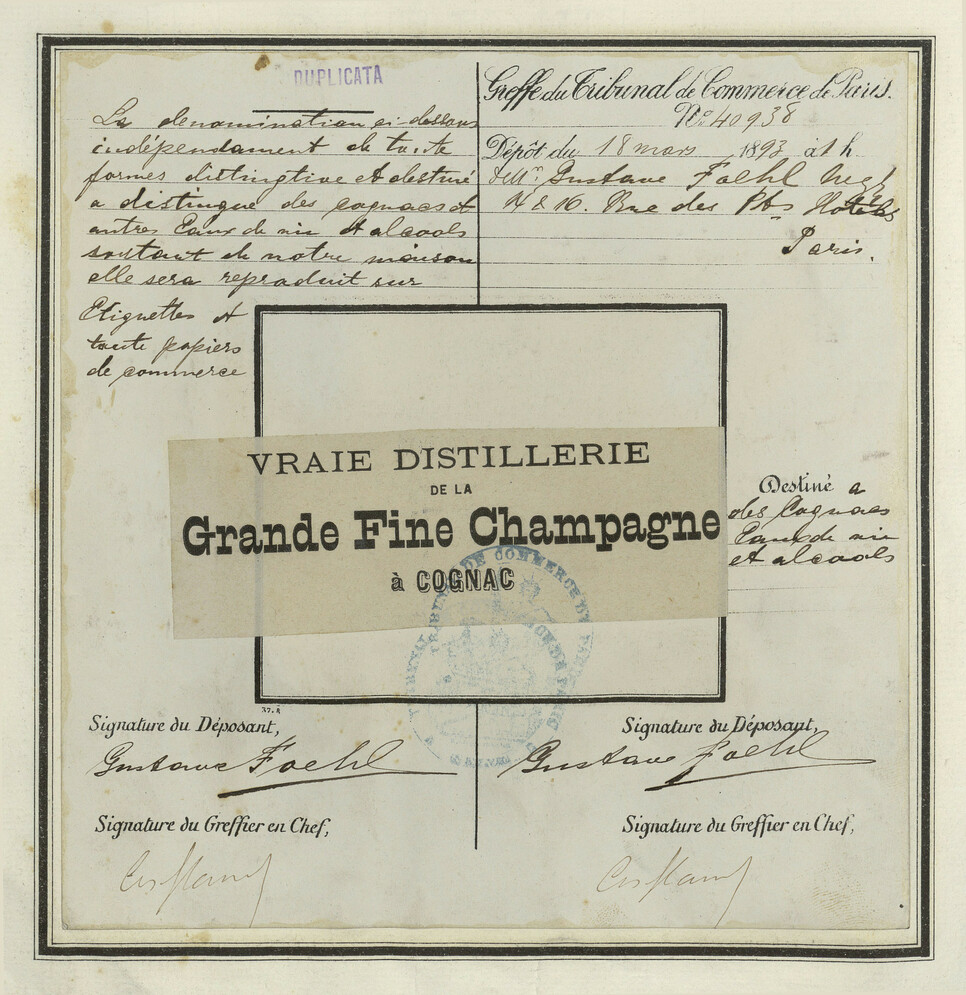 DUPLICATA
La denomination ci-dessous
indépendament de toute
formes distinctive et destiné
a distingue des cognacs et
autres Eaux de vie et alcools
sortant de notre maison
elle sera reproduit sur
Etiquettes et
toute papiers
de commerce
Greffe du Tribunal de Commerce de Paris.
No 40938
Dépôt du 18 mars 1893 à 1 h.
de Mr. Gustave Foehl Negt
14 & 16. Rue des Pts Hôtels
Paris.
VRAIE DISTILLERIE
DE LA
Grande Fine Champagne
à COGNAC
Destiné a
des Cognacs
Eaux de vie
et alcools
37.
Signature du Déposant,
Gustave Foehl
Signature du Greffier en Chef,
Signature du Déposant,
Gustave Foehl
Signature du Greffier en Chef,
TRIBUNAL DE COMMERCE DE